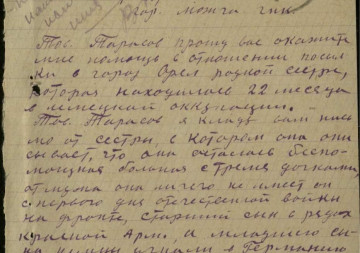 гор. можга
Тов. Тарасов прошу вас окажите
мне помощь в отношении посыл
ки в город Орел родной сестре,
которая находилась 22 месяца
в немецкой оккупации.
Тов. Тарасов я кладу вам пись
мо от сестры, в котором она опи
сывает, что она осталась беспо-
мощная больная с тремя дочками,
от мужа она ничего не имеет он
с первого дня отечественной войны
на фронте, старший сын в рядах
красной Арми, а младшего сы-
на немцы угнали в Германию